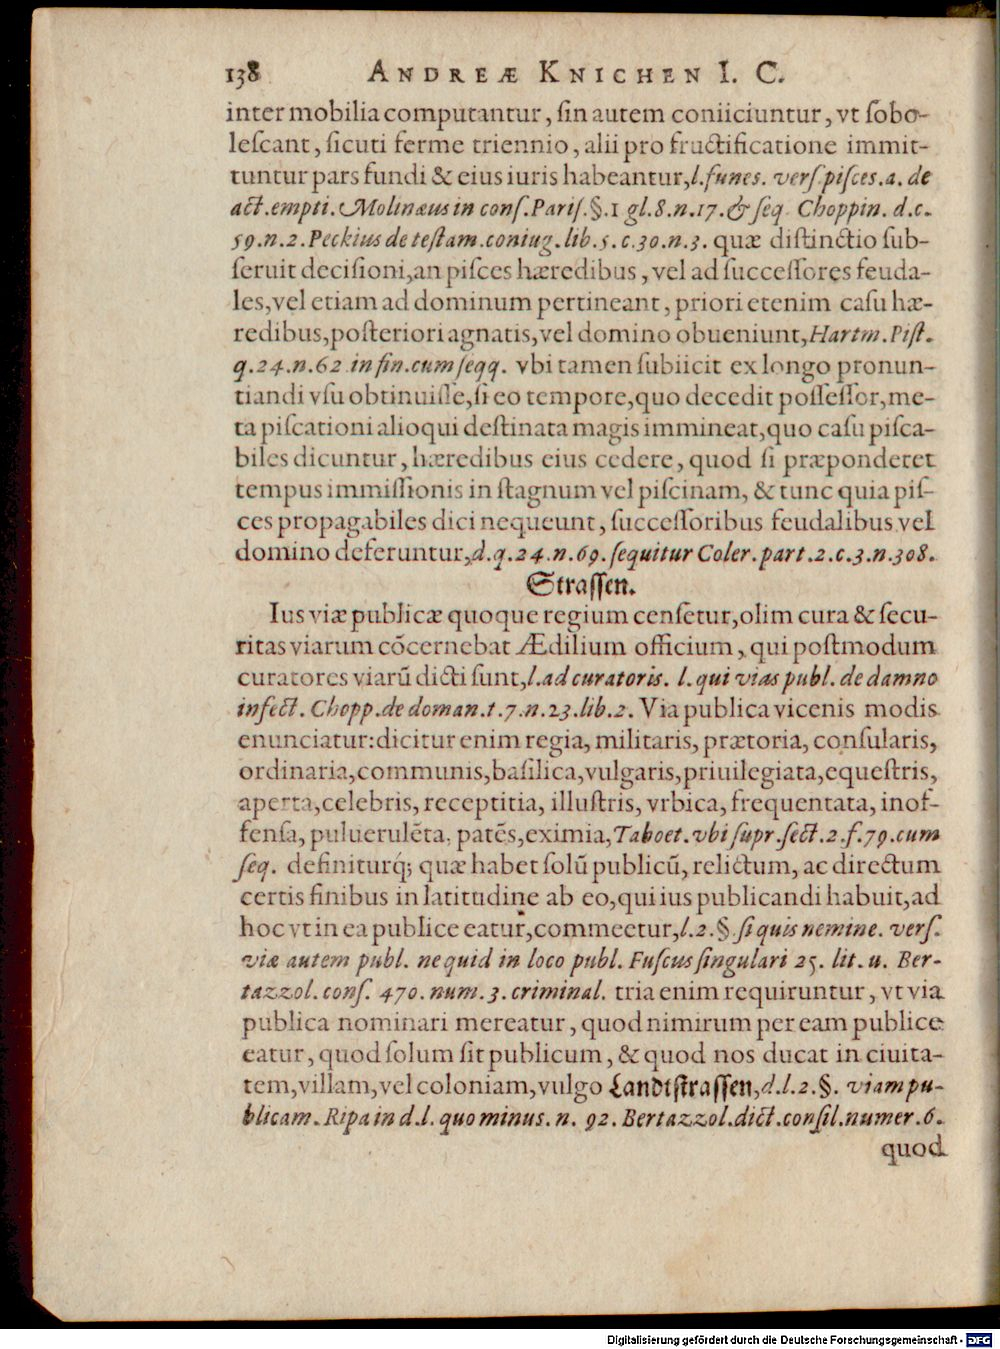 138 ANDREÆ KNICHEN I. C.
inter mobilia computantur, ſin autem coniiciuntur, vt ſobo-
leſcant, ſicuti ferme triennio, alii pro fructificatione immit-
tuntur pars fundi & eius iuris habeantur, l. funes. verſ. piſces. a. de
act. empti. Molinæus in conſ. Pariſ. §. 1 gl. 8. n. 17. & ſeq. Choppin. d. c.
59. n. 2. Peckius de teſtam. coniug. lib. 5. c. 30. n. 3. quæ diſtinctio ſub-
ſeruit deciſioni, an piſces hæredibus, vel ad ſucceſſores feuda-
les, vel etiam ad dominum pertineant, priori etenim caſu hæ-
redibus, poſteriori agnatis, vel domino obueniunt, Hartm. Piſt.
q. 24. n. 62. in fin. cum ſeqq. vbi tamen ſubiicit ex longo pronun-
tiandi vſu obtinuiſſe, ſi eo tempore, quo decedit poſſeſſor, me-
ta piſcationi alioqui deſtinata magis immineat, quo caſu piſca-
biles dicuntur, hæredibus eius cedere, quod ſi præponderet
tempus immiſſionis in ſtagnum vel piſcinam, & tunc quia piſ-
ces propagabiles dici nequeunt, ſucceſſoribus feudalibus vel
domino deferuntur, d. q. 24. n. 69. ſequitur Coler. part. 2. c. 3. n. 308.
Straſſen.
Ius viæ publicæ quoque regium cenſetur, olim cura & ſecu-
ritas viarum cõcernebat Ædilium officium, qui poſtmodum
curatores viarũ dicti ſunt, l. ad curatoris. l. qui vias publ. de damno
infect. Chopp. de doman. t. 7. n. 23. lib. 2. Via publica vicenis modis
enunciatur: dicitur enim regia, militaris, prætoria, conſularis,
ordinaria, communis, baſilica, vulgaris, priuilegiata, equeſtris,
aperta, celebris, receptitia, illuſtris, vrbica, frequentata, inof-
fenſa, puluerulẽta, patẽs, eximia, Taboet. vbi ſupr. ſect. 2. f. 79. cum
ſeq. definiturq́; quæ habet ſolũ publicũ, relictum, ac directum
certis finibus in latitudine ab eo, qui ius publicandi habuit, ad
hoc vt in ea publice eatur, commeetur, l. 2. §. ſi quis nemine. verſ.
viæ autem publ. ne quid in loco publ. Fuſcus ſingulari 25. lit. u. Ber-
tazzol. conſ. 470. num. 3. criminal. tria enim requiruntur, vt via
publica nominari mereatur, quod nimirum per eam publice
eatur, quod ſolum ſit publicum, & quod nos ducat in ciuita-
tem, villam, vel coloniam, vulgo Landtſtraſſen, d. l. 2. §. viam pu-
blicam. Ripa in d. l. quo minus. n. 92. Bertazzol. dict. conſil. numer. 6.
quod
Digitalisierung gefördert durch die Deutsche Forschungsgemeinschaft - DFG